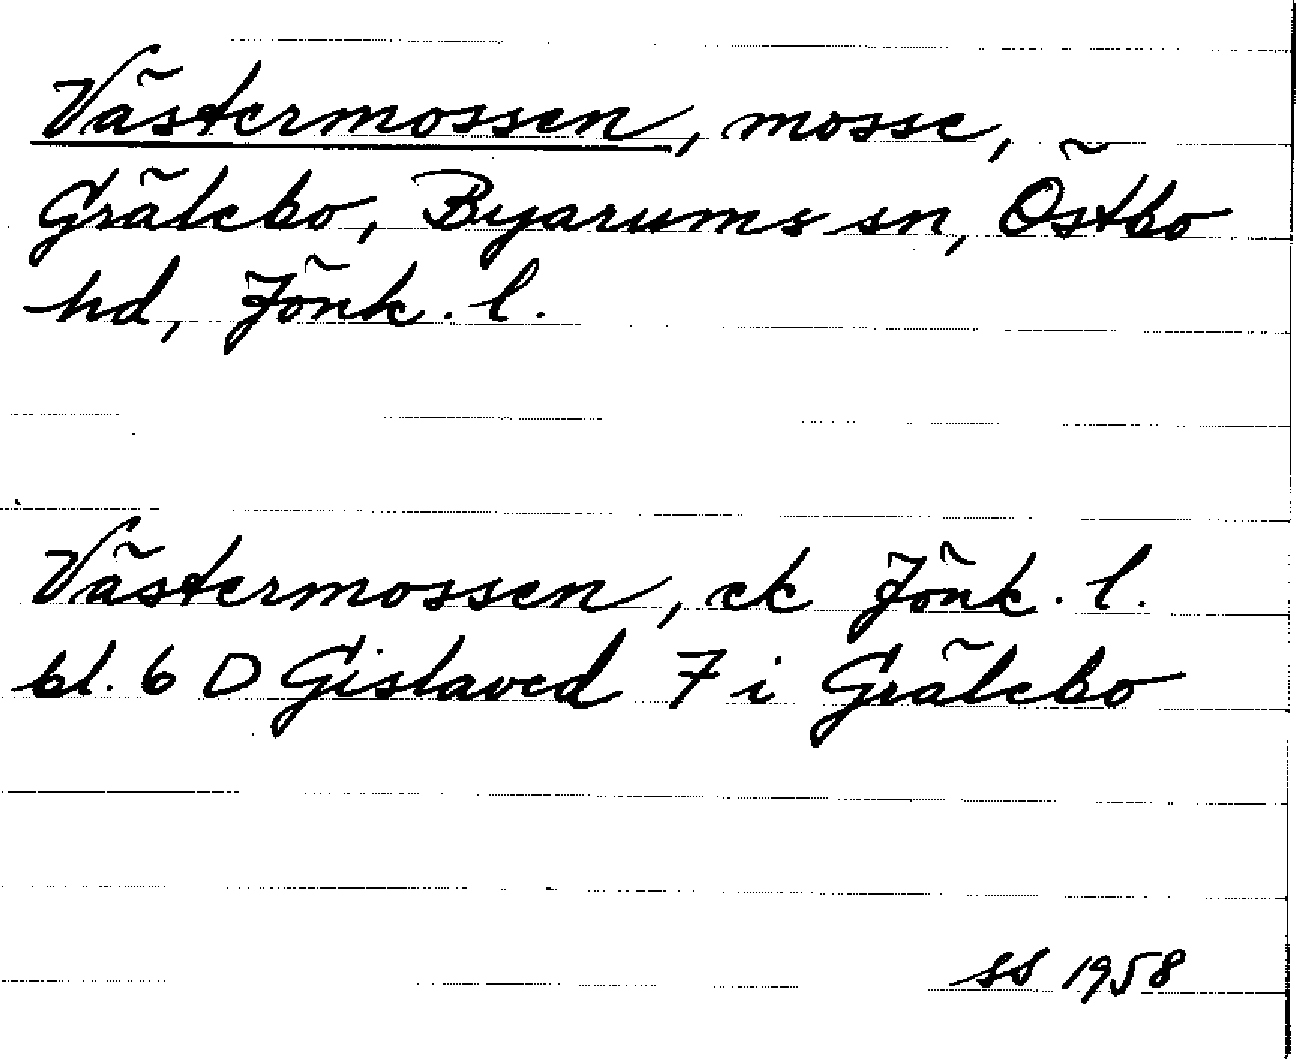 Västermossen, mosse,
Grälebo, Byarums sn, Östbo
hd, Jönk. l.
Västermossen, ek Jönk. l.
bl. 6 D Gislaved 7 i Grälebo
SS 1958